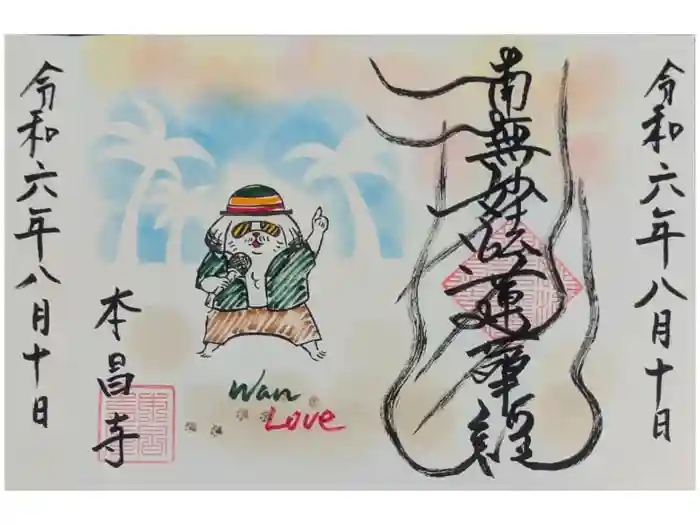 令和六年八月十日
南無妙法蓮華経
Wan
Love
本昌寺
令和六年八月十日